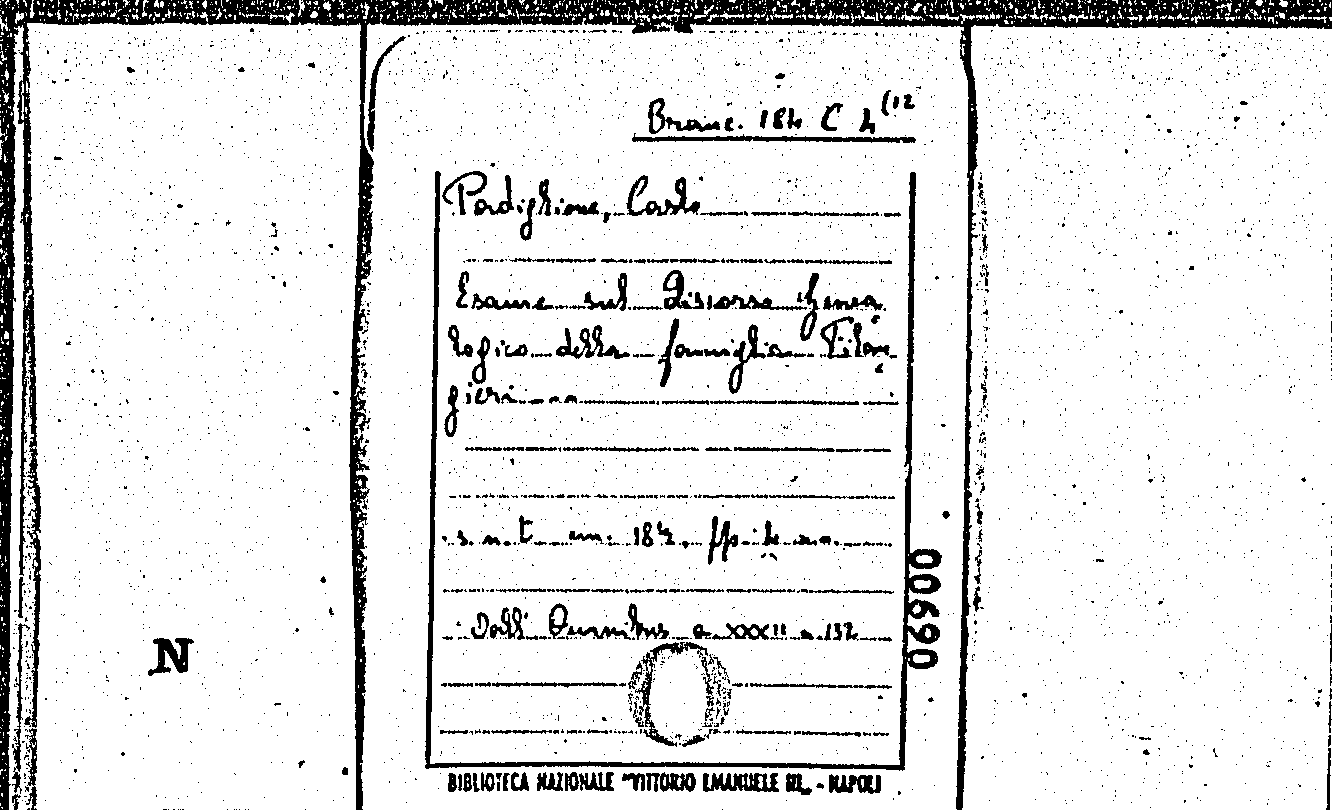 Branc. 184 C 4 (12
Padiglione, Carlo
Esame sul Discorso Genea
logico della famiglia Filan
gieri
s. n. t. 
Dall' Omnibus a. XXXII n. 132
00690
N
BIBLIOTECA NAZIONALE "VITTORIO EMANUELE III„ - NAPOLI